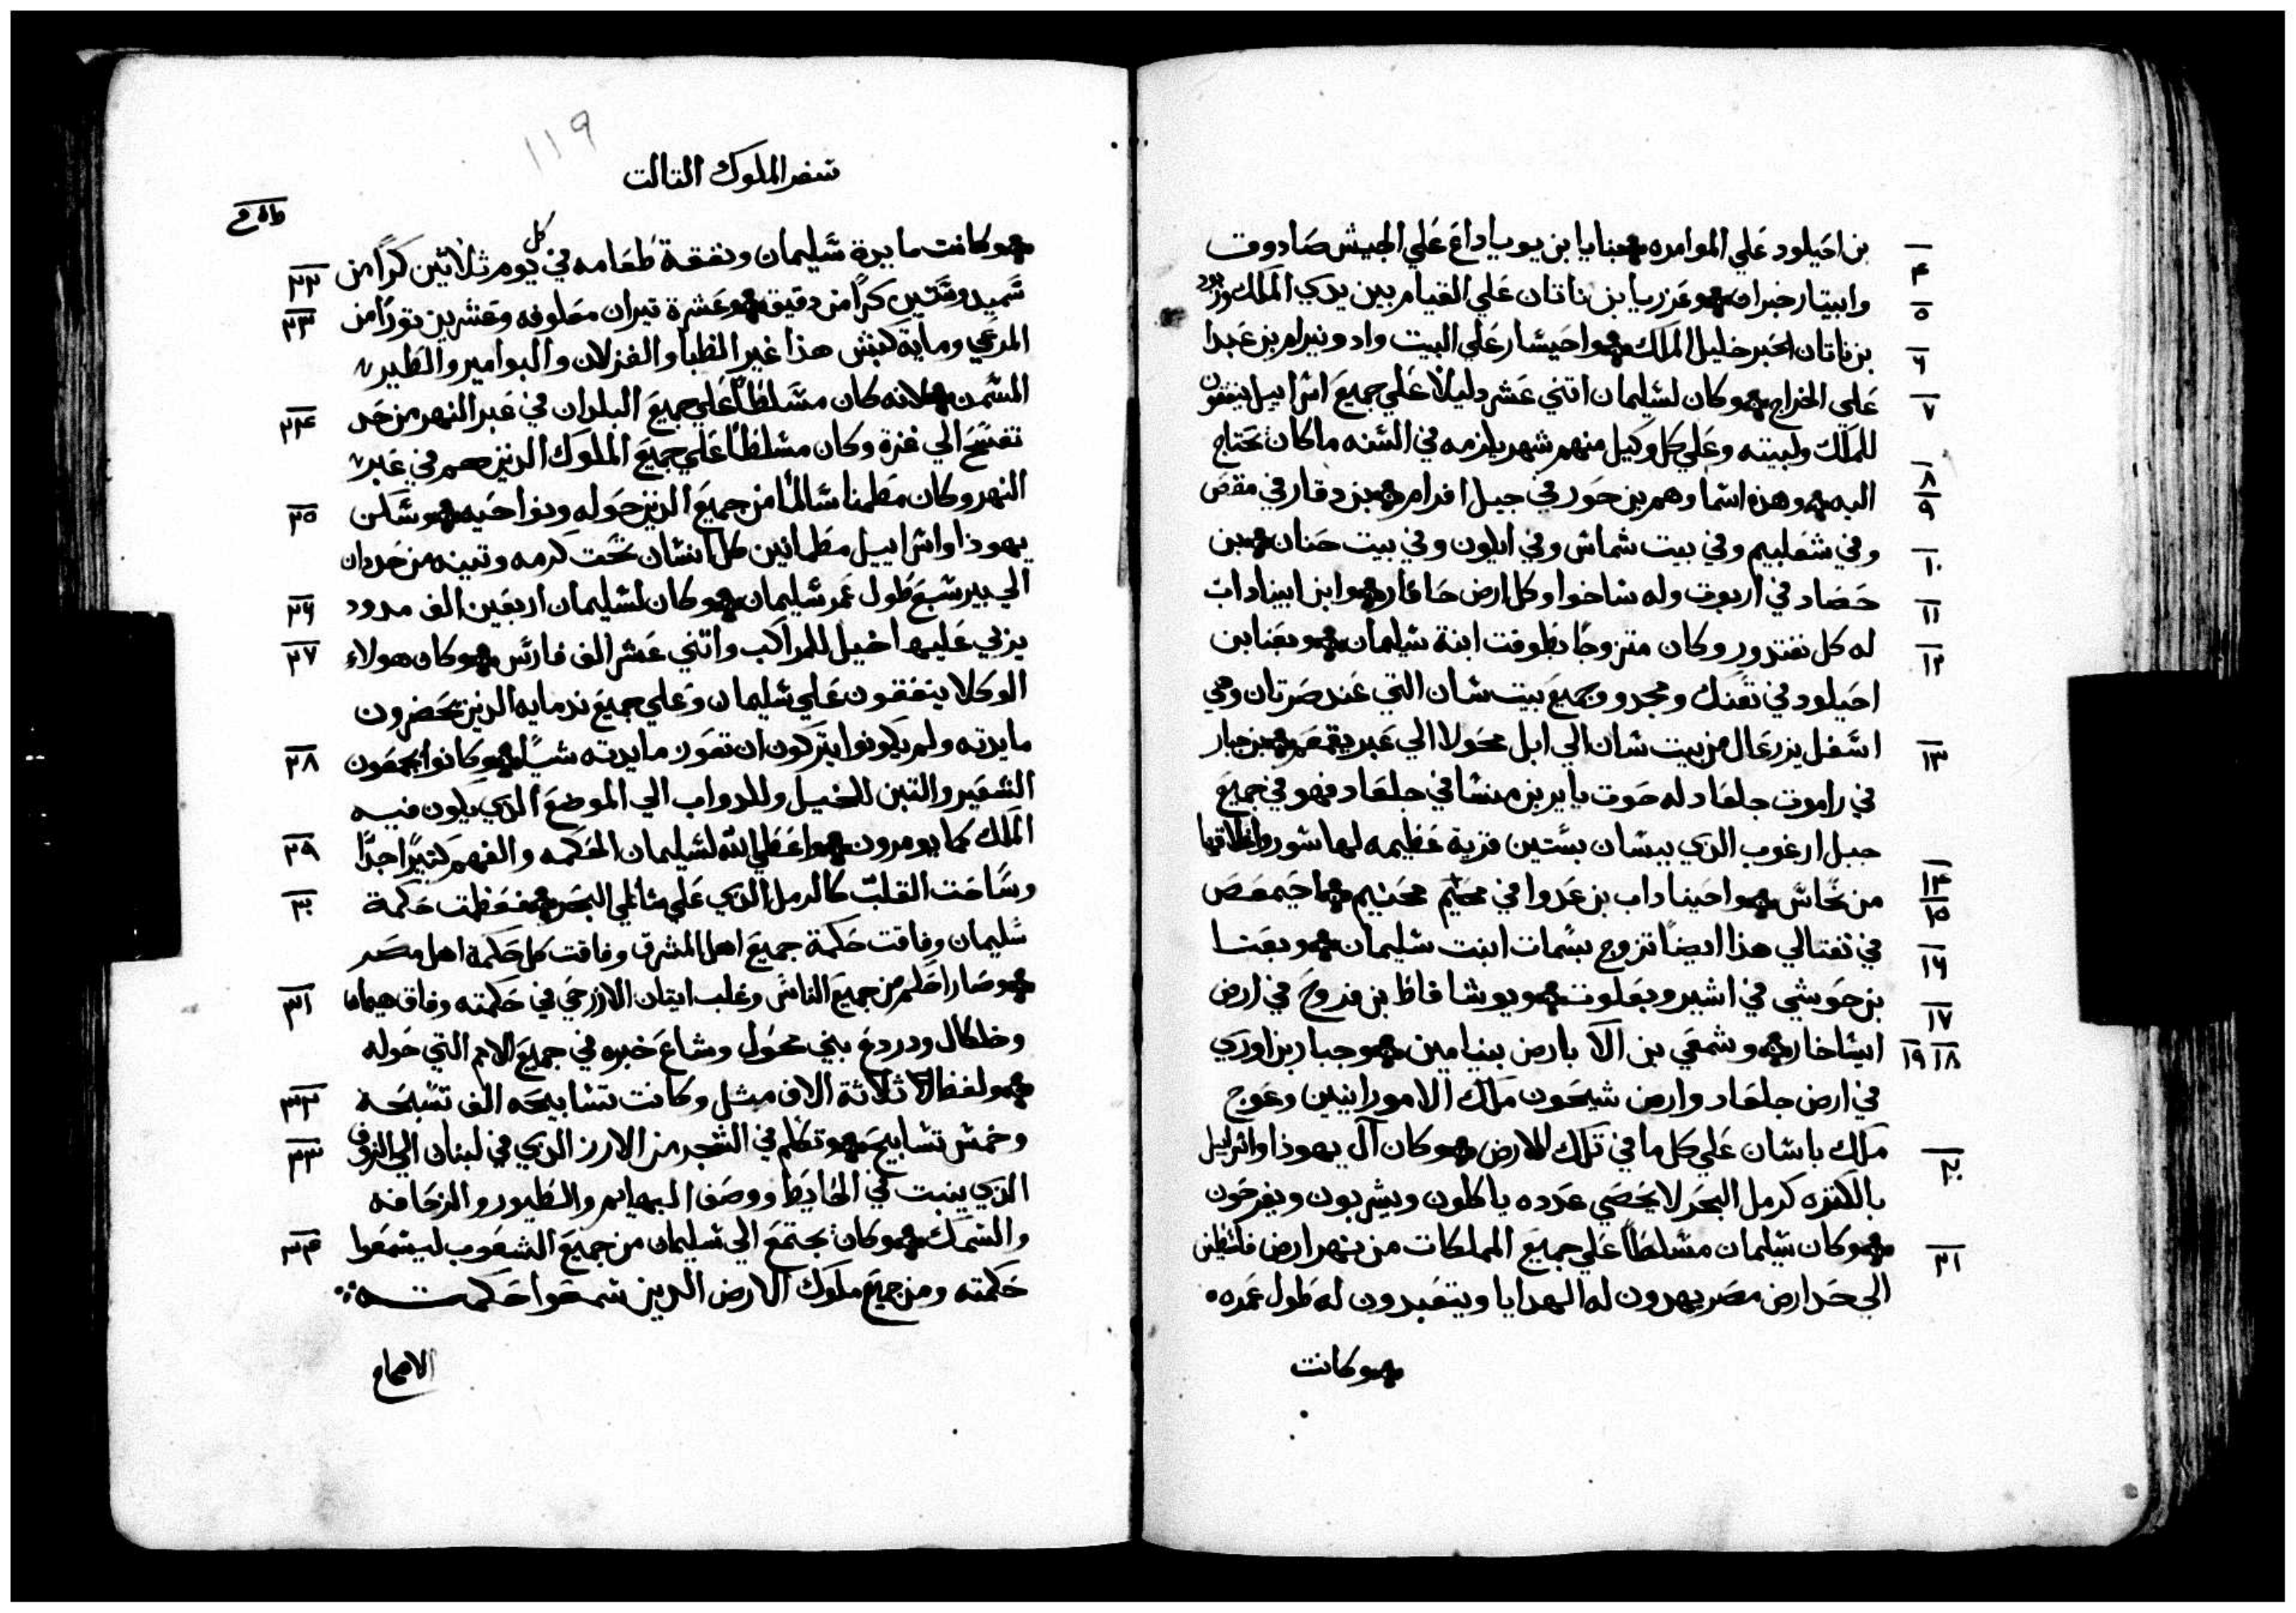 بن احيلود علي الموامره وبنايا بن يوياداع علي الجيش صادوق
٤
وابيتار خبران وعزريا بن ناتان علي القيام بين يدي الملك وزبود
٥
بن ناتان الحبر خليل الملك واحيشار علي البيت وادونيرام بن عبدا
٦
علي الخراج وكان لشليمان اتني عشر دليلاً علي جميع اشراييل ينفقون
٧
للملك ولبيته وعلي كل وكيل منهم شهر يلزمه في الشنه ما كان يحتاج
٨
اليه وهذه اشماوهم بن حور في جبل افرام بن دقار في مقص
٩
وفي شعلبيم وفي بيت شماش وفي ايلون وفي بيت حنان بن
١٠
حصاد في اربوت وله شاخوا وكل ارض حافار وابن ابيناداب
١١
له كل نفتدور وكان متزوجاً بطوفت ابنة شليمان وبعنا بن
١٢
احيلود في تعنك ومجدو وجميع بيت شان التي عند صرتان وهي
اشفل يزرعال من بيت شان الي ابل محولا الي عبر يقمعم بن جبار
١٣
في راموت جلعاد له حوت يايربن منشا في جلعاد فهو في جميع
جبل ارغوب الذي ببشان بشتين قرية عظيمه لها شور واغلاقها
من نحاش واحيناداب بن عدوا في محنيم احيمعص
١٤
١٥
في نفتالي هذا ايضاً تزوج بشمات ابنت شليمان وبعنا
١٦
بن حوشي في اشير وبعلوت ويوشافاظ بن فروح في ارض
١٧
ايشاخار وشمعي بن الا بارض بنيامين وجبار بن اوري
١٨ ١٩
في ارض جلعاد وارض شيحون ملك الامورانيين وعوج
ملك باشان علي كل ما في تلك الارض وكان آل يهوذا واشراييل
٢٠
بالكثره كرمل البحر لا يحصي عدده ياكلون ويشربون ويفرحون
وكان شليمان مشلطاً علي جميع المملكات من نهر ارض فلشطين
٢١
الي حد ارض مصر يهدون له الهدايا ويتعبدون له طول عمره
وكانت
١١٩
شفر الملوك التالت
وكانت مايدة شليمان ونفقة طعامه في كل يوم ثلاثين كراً من
٢٢
شميد وشتين كراً من دقيق وعشرة تيران معلوفه وعشرين توراً من
٢٣
المرعي وماية كبش هذا غير الظبا والغزلان والبوامير والطير
المشمن لانه كان مشلطاً علي جميع البلدان في عبر النهر من حد
٢٤
تفشح الي غزة وكان مشلطاً علي جميع الملوك الذين هم في عبر
النهر وكان مطمنا شالماً من جميع الذين حوله ونواحيه وشكن
٢٥
يهوذا واشراييل مطمانين كل انشان تحت كرمه وتينه من حد دان
الي بير شبع طول عمر شليمان وكان لشليمان اربعين الف مدود
٢٦
يربي عليها خيل للمراكب واتني عشر الف فارش وكان هولاء
٢٧
الوكلا ينفقون علي شليمان وعلي جميع ندمايه الذين يحضرون
مايدته ولم يكونوا يتركون ان تعوز مايدته شياً وكانوا يجمعون
٢٨
الشعير والتبن للخيل وللدواب الي الموضع الذي يكون فيه
الملك كما يومرون واعطي الله لشليمان الحكمه والفهم كتيراً جداً
٢٩
وشاعت القلب كالرمل الذي علي شاطي البحر فعظمت حكمة
٣٠
شليمان وفاقت حكمة جميع اهل المشرق وفاقت كل حكمة اهل مصر
وصار احكم من جميع الناش وغلب ايتان الازرحي في حكمته وفاق هيمان
٣١
وخلكال ودردع بني محول وشاع خبره في جميع الامم التي حوله
ولفظ ثلاثة الاف مثل وكانت تشابيحه الف تشبحة
٣٢
وخمش تشابيح وتكلم في الشجر من الارز الذي في لبنان الي الزوفا
٣٣
الذي ينبت في الحايط ووصف البهايم والطيور والزحافه
والشمك وكان يجتمع الي شليمان من جميع الشعوب ليشمعوا
٣٤
حكمته ومن جميع ملوك الارض الذين شمعوا حكمته
الاصحاح